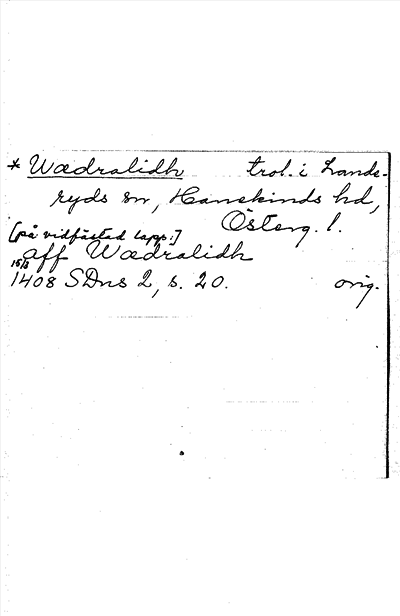 * Wædralidh trol. i Lands-
ryds sn, Hanekinds hd,
Österg. l.
[på vidfästad lapp:]
aff Wædralidh
15/3
1408 SDns 2, s. 20. orig.